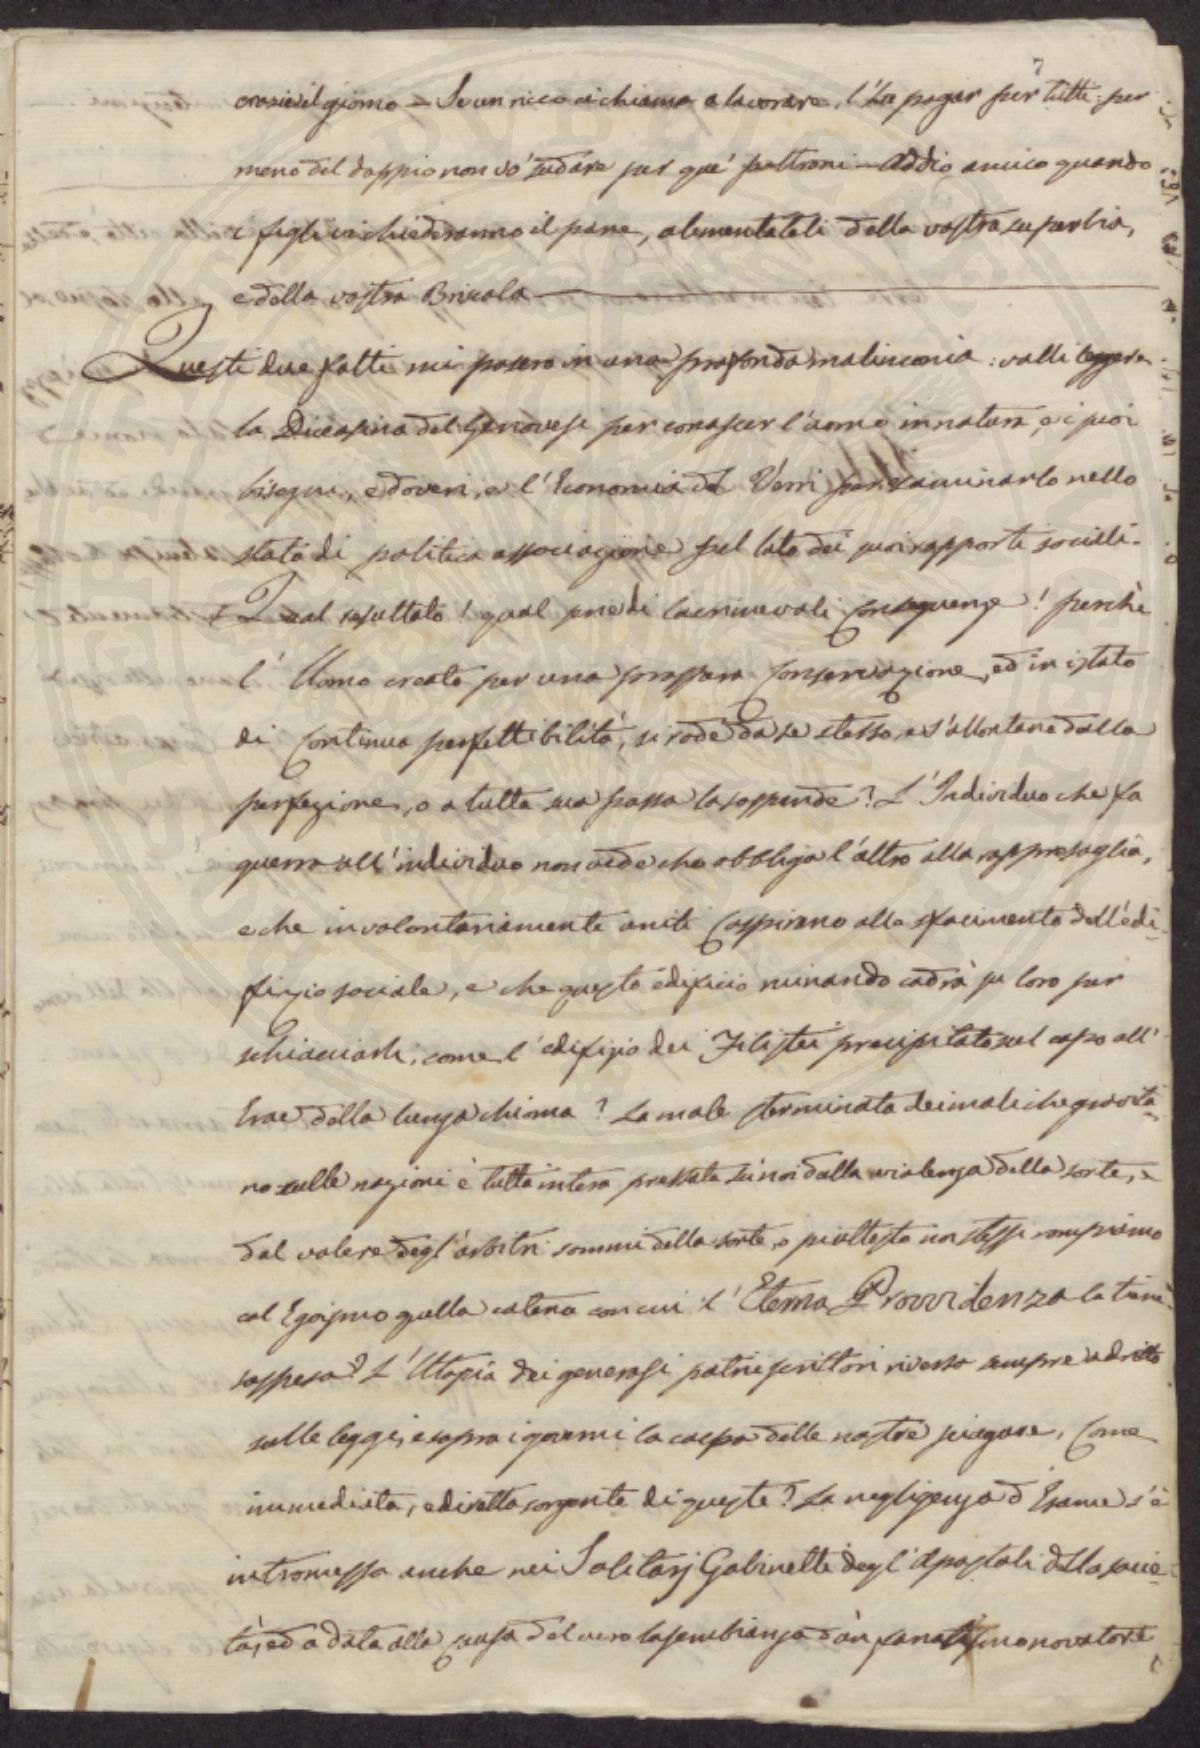 7
il giorno = Se un ricco ci chiama a lavorare, l'ha pagar per tutti: per
meno del doppio non vo' sudare per que' poltroni — Addio amico quando
i figli vi chiederanno il pane, alimentateli della vostra superbia,
e della vostra Briscola
Questi due fatti mi posero in una profonda malinconia: volli leggere
la Diceosina del Genovesi per conoscer l'uomo in natura, e i suoi
bisogni, e doveri, e l'Economia del Verri per esaminarlo nello
stato di politica associazione sul lato dei suoi rapporti sociali.
Qual resultato! qual serie di lacrimevoli conseguenze! perchè
l'Uomo creato per una prospera Conservazione, ed in istato
di Continua perfettibilità, si rode da se stesso, e s'allontana dalla
perfezione, o a tutta sua possa la sospende? L'Individuo che fa
guerra all'individuo non vede che obbliga l'altro alla rappresaglia,
e che involontariamente uniti Cospirano allo sfacimento dell'edi-
fizio sociale, e che questo edificio ruinando cadrà su loro per
schiacciarli, come l'edifizio dei Filistei precipitato sul capo all'
Eroe della lunga chioma? La mole sterminata dei mali che gravita-
no sulle nazioni è tutta intera prestata su noi dalla violenza della sorte, e
dal volere degl'arbitri sommi della sorte, o piuttosto noi stessi rompiamo
col Egoismo quella catena con cui l'Eterna Provvidenza la tiene
sospesa? L'Utopia dei generosi patrii scrittori riversò sempre a dritto
sulle leggi, e sopra i governi la colpa delle nostre sciagure, Come
immediata, e diretta sorgente di queste? La negligenza d'Esame s'è
intromessa anche nei Solitarj Gabinetti degl'Apostoli della socie-
tà, ed a data alla causa del vero la sembianza d'un fanatismo novatore